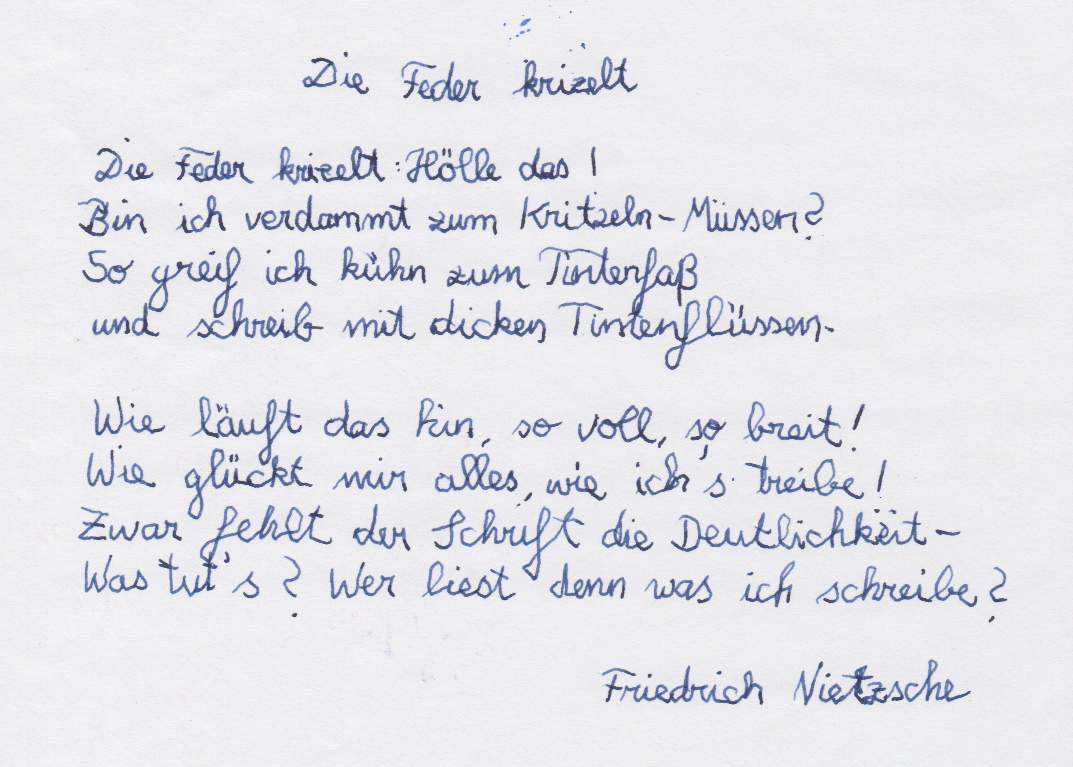 Die Feder krizelt
Die Feder krizelt: Hölle das!
Bin ich verdammt zum Kritzeln-Müssen?
So greif ich kühn zum Tintenfaß
und schreib mit dicken Tintenflüssen.
Wie läuft das hin, so voll, so breit!
Wie glückt mir alles, wie ich's treibe!
Zwar fehlt der Schrift die Deutlichkeit-
Was tut's? Wer liest denn was ich schreibe?
Friedrich Nietzsche